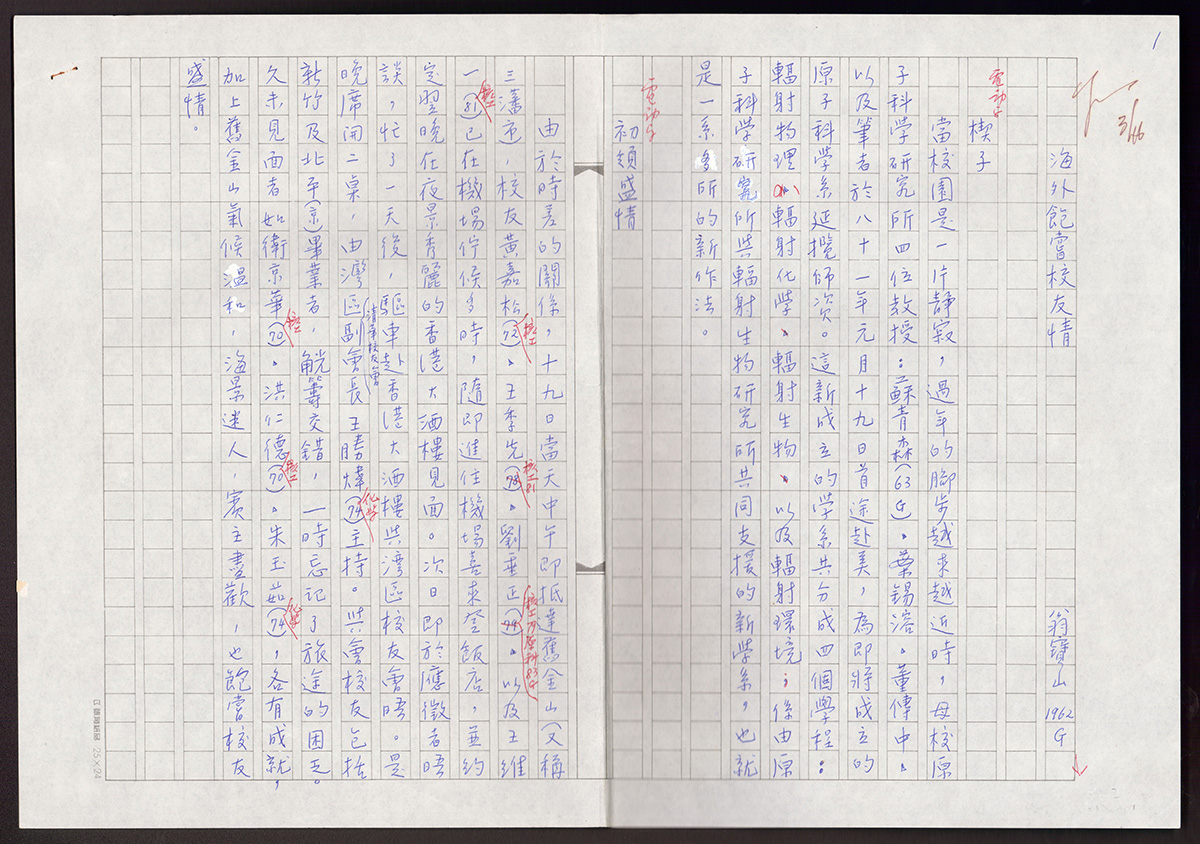 1
3/16
海外飽嘗校友情 翁寶山 1962 G
電動字
楔子
當校園是一片靜寂，過年的腳步越來越近時，母校原
子科學研究所四位教授：蘇青森(63G)。葉錫溶。董傳中。
以及筆者於八十一年元月十九日首途赴美，為即將成立的
原子科學系延攬師次。這新成立的學系共分成四個學程：
輻射物理、輻射化學、輻射生物、以及輻射環境；係由原
子科學研究所與輻射生物研究所共同支援的新學系，也就
是一系多所的新作法。
電動字
初領盛情
由於時差的關係，十九日當天中午即抵達舊金山(又稱
三藩市，校友黃嘉松(72核工)。王季先(78核工81)。劉垂正(79核工79原科83G)。以及王維
一(81核工)已在機場佇候多時，隨即進住機場喜來登飯店，並約
定翌晚在夜景秀麗的香港大酒樓見面。次日即於應徵者晤
談，忙了一天後，驅車赴香港大酒樓與灣區校友會晤。是
晚席開二桌，由灣區清華校友會副會長王勝煒(74化學)主持。與會校友包括
新竹及北平(京)畢業者，觥籌交錯，一時忘記了旅途的困乏。
久未見面者如衛京華(70核工)。洪仁德(70核工)。朱玉茹(74化學)，各有成就，
加上舊金山氣候溫和，海景迷人，賓主盡歡，也飽嘗校友
盛情。
25×24